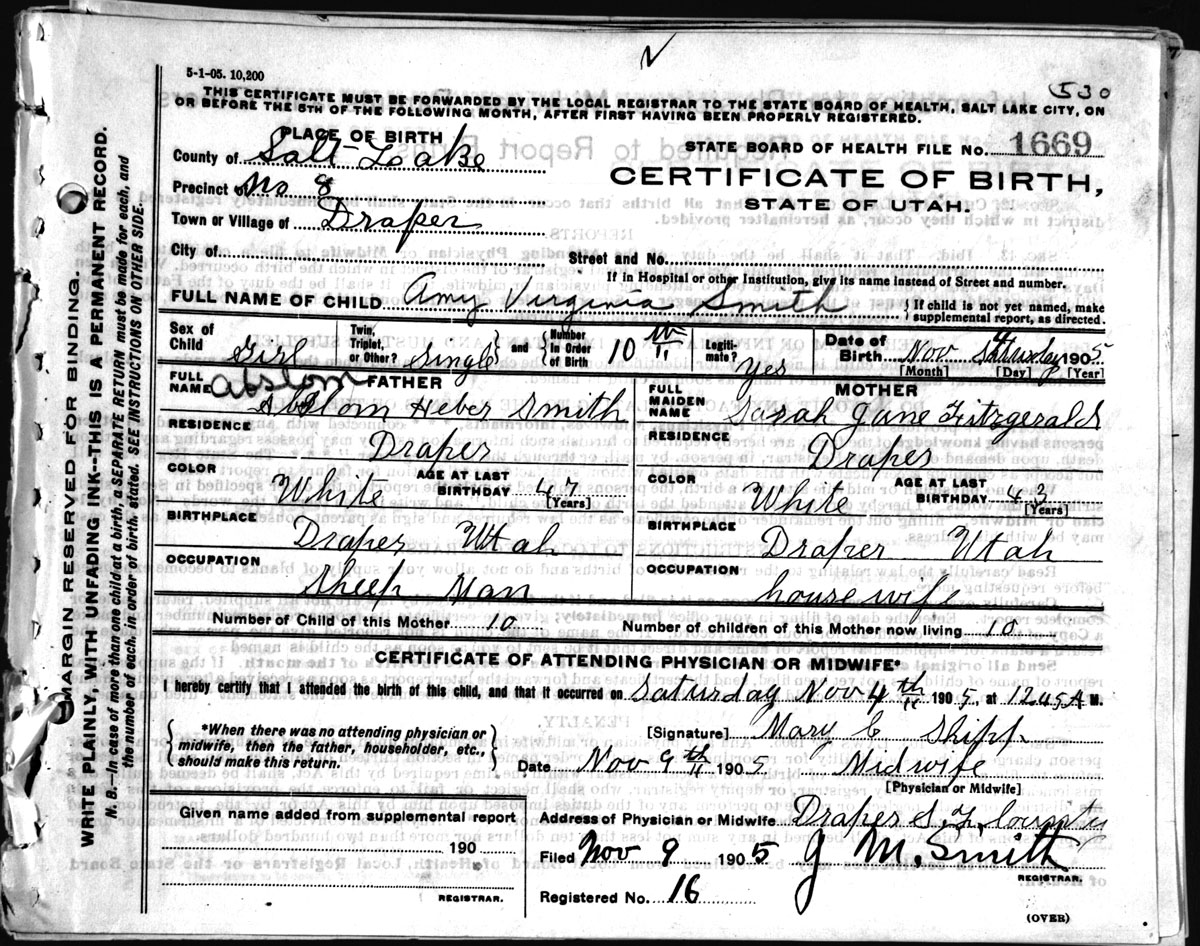 530
5-1-05. 10,200
THIS CERTIFICATE MUST BE FORWARDED BY THE LOCAL REGISTRAR TO THE STATE BOARD OF HEALTH, SALT LAKE CITY, ON
OR BEFORE THE 5TH OF THE FOLLOWING MONTH, AFTER FIRST HAVING BEEN PROPERLY REGISTERED.
PLACE OF BIRTH
STATE BOARD OF HEALTH FILE No. 1669
County of Salt Lake
CERTIFICATE OF BIRTH,
Precinct of No 8
STATE OF UTAH.
Town or Village of Draper
City of
Street and No.
If in Hospital or other Institution, give its name instead of Street and number.
FULL NAME OF CHILD Amy Virginia Smith { If child is not yet named, make
supplemental report, as directed.
Sex of Child Girl Twin, Triplet, or Other? Single } and { Number in Order of Birth 10th Legiti-mate? Yes Date of Birth Nov 4 Saturday 1905
[Month] [Day] [Year]
FATHER
FULL NAME Abslom Abslom Heber Smith
MOTHER
FULL MAIDEN NAME Sarah Jane Fitzgerald
RESIDENCE Draper
RESIDENCE Draper
COLOR White AGE AT LAST BIRTHDAY 47 [Years]
COLOR White AGE AT LAST BIRTHDAY 43 [Years]
BIRTHPLACE Draper Utah
BIRTHPLACE Draper Utah
OCCUPATION Sheep Man
OCCUPATION housewife
Number of Child of this Mother 10 Number of children of this Mother now living 10
CERTIFICATE OF ATTENDING PHYSICIAN OR MIDWIFE*
I hereby certify that I attended the birth of this child, and that it occurred on Saturday Nov 4th 1905, at 1205 A M.
{ *When there was no attending physician or
midwife, then the father, householder, etc.,
should make this return. }
[Signature] Mary C Shipp
Date Nov 9th 1905 Midwife
[Physician or Midwife]
Given name added from supplemental report
190
REGISTRAR.
Address of Physician or Midwife Draper S. L. county
Filed Nov 9 1905 J M. Smith
REGISTRAR.
Registered No. 16
(OVER)
MARGIN RESERVED FOR BINDING.
WRITE PLAINLY, WITH UNFADING INK--THIS IS A PERMANENT RECORD.
N. B.--In case of more than one child at a birth, a SEPARATE RETURN must be made for each, and
the number of each, in order of birth, stated. SEE INSTRUCTIONS ON OTHER SIDE.